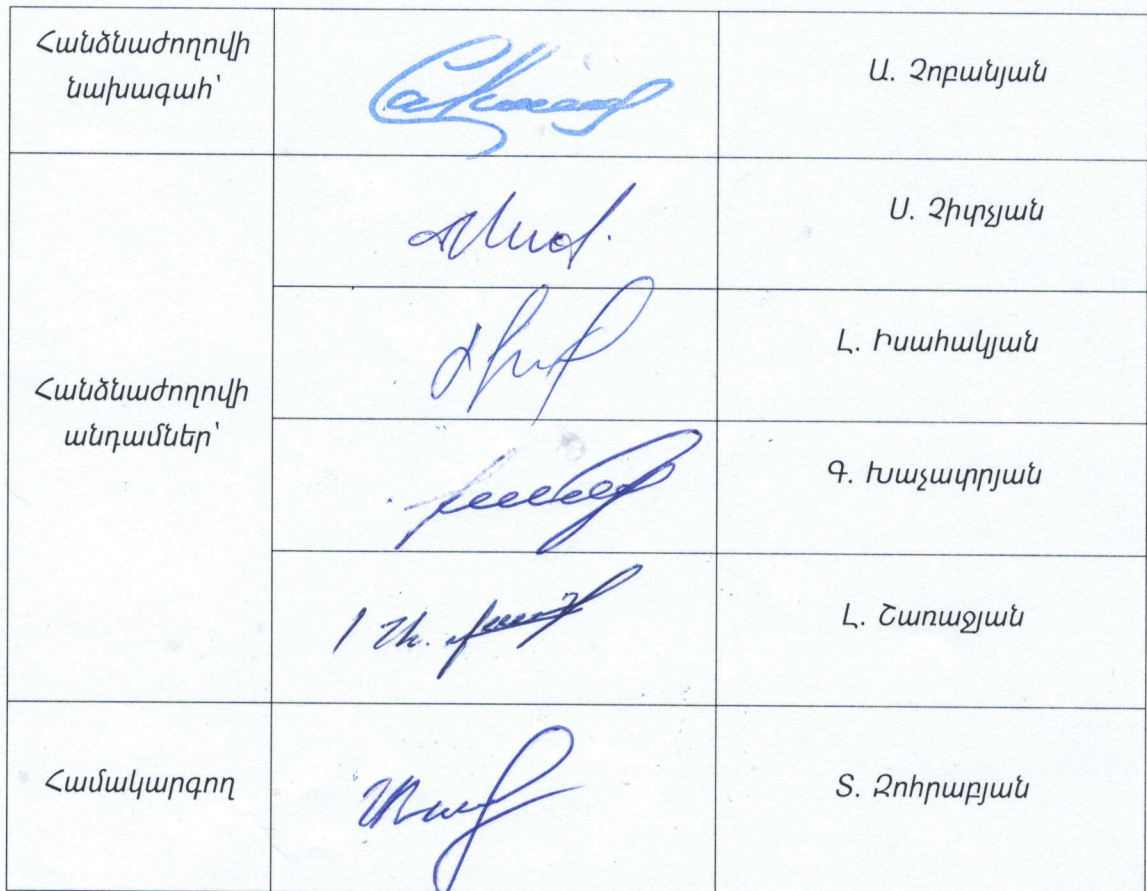 Հանձնաժողովի
նախագահ՝
Ա. Չոբանյան
Հանձնաժողովի
անդամներ՝
Ս. Չիտչյան
Լ. Իսահակյան
Գ. Խաչատրյան
Լ. Շառաջյան
Համակարգող
Տ. Զոհրաբյան